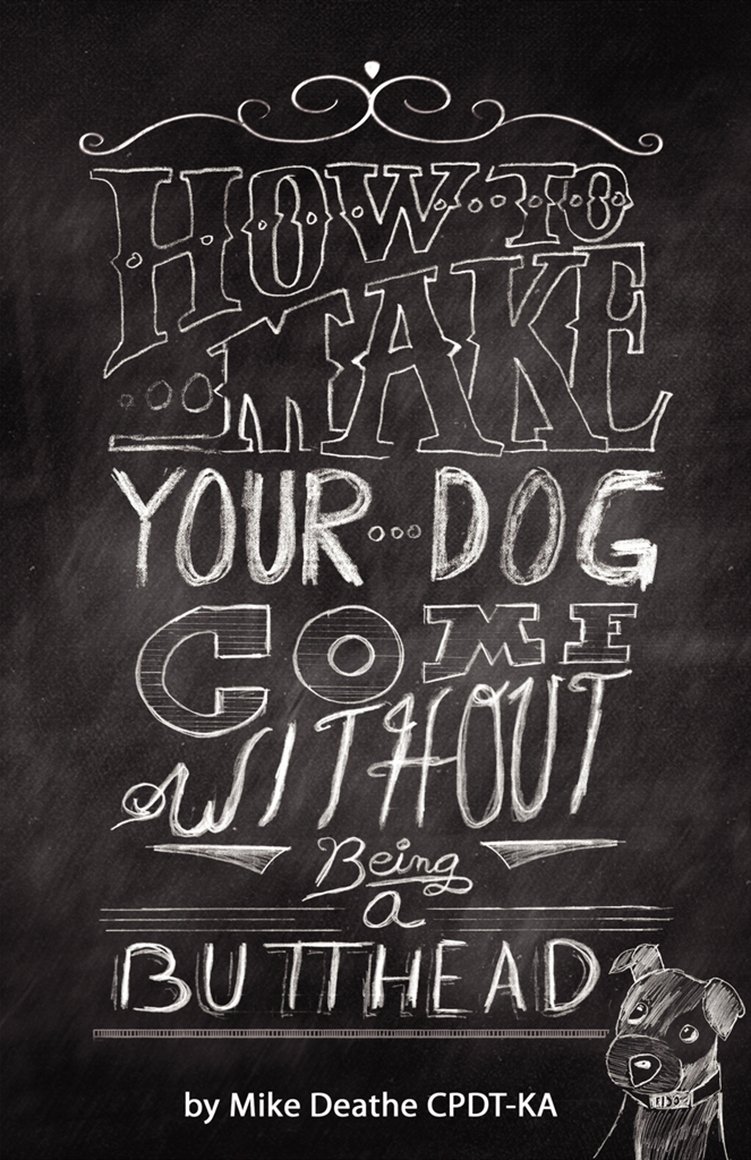 HOW TO
MAKE
YOUR DOG
COME
WITHOUT
Being
a
BUTTHEAD
FIDO
by Mike Deathe CPDT-KA